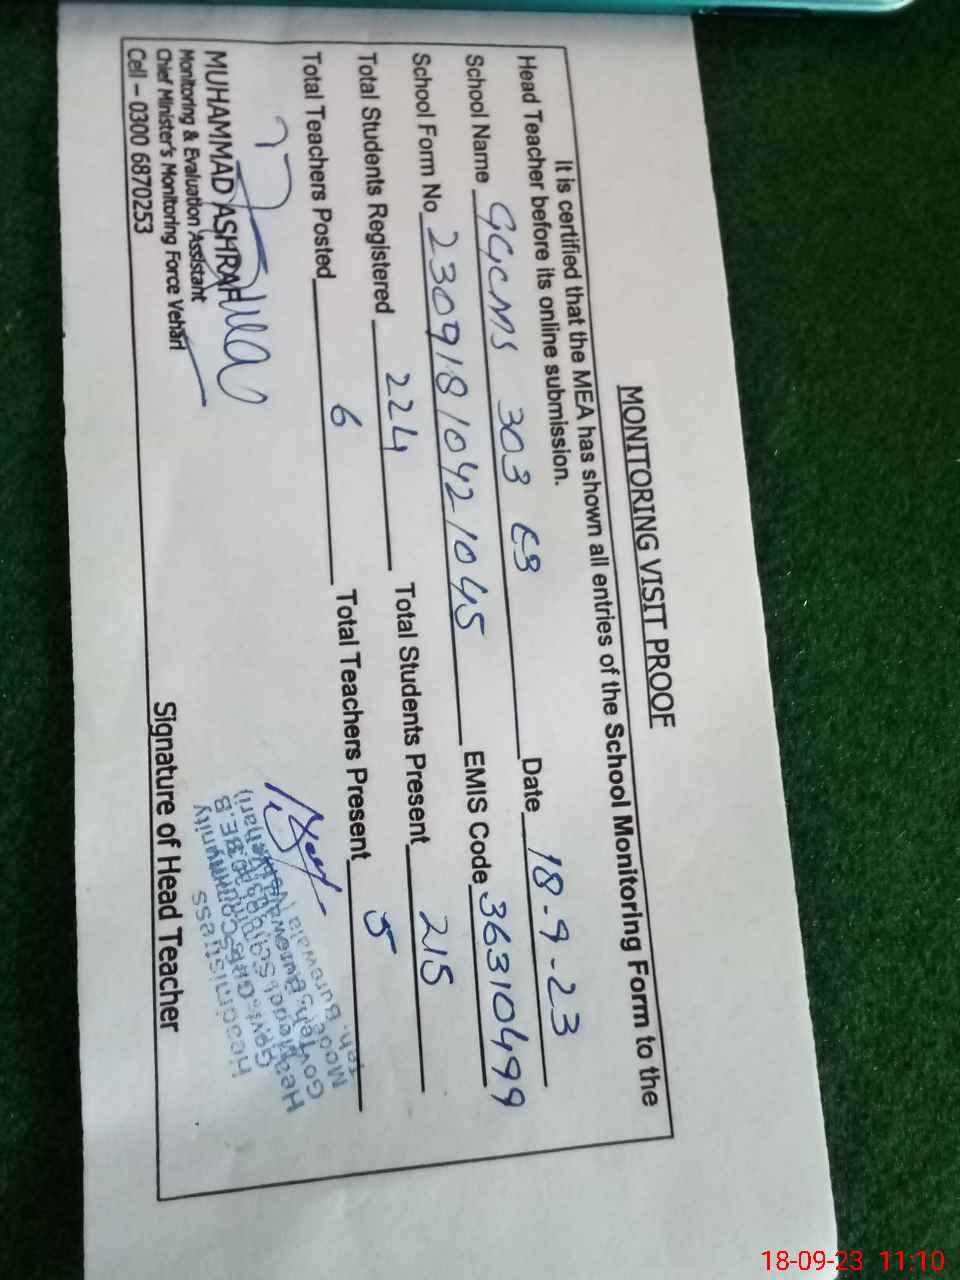 MONITORING VISIT PROOF
It is certified that the MEA has shown all entries of the School Monitoring Form to the
Head Teacher before its online submission.
School Name GGCMS 303 EB Date 18.9-23
School Form No 2309181042 1045 EMIS Code 36310499
Total Students Registered 224 Total Students Present 215
Total Teachers Posted 6 Total Teachers Present 5
MUHAMMAD ASHRAF
Monitoring & Evaluation Assistant
Chief Minister's Monitoring Force Vehari
Cell – 0300 6870253
Signature of Head Teacher
Headmistress
18-09-23 11:10